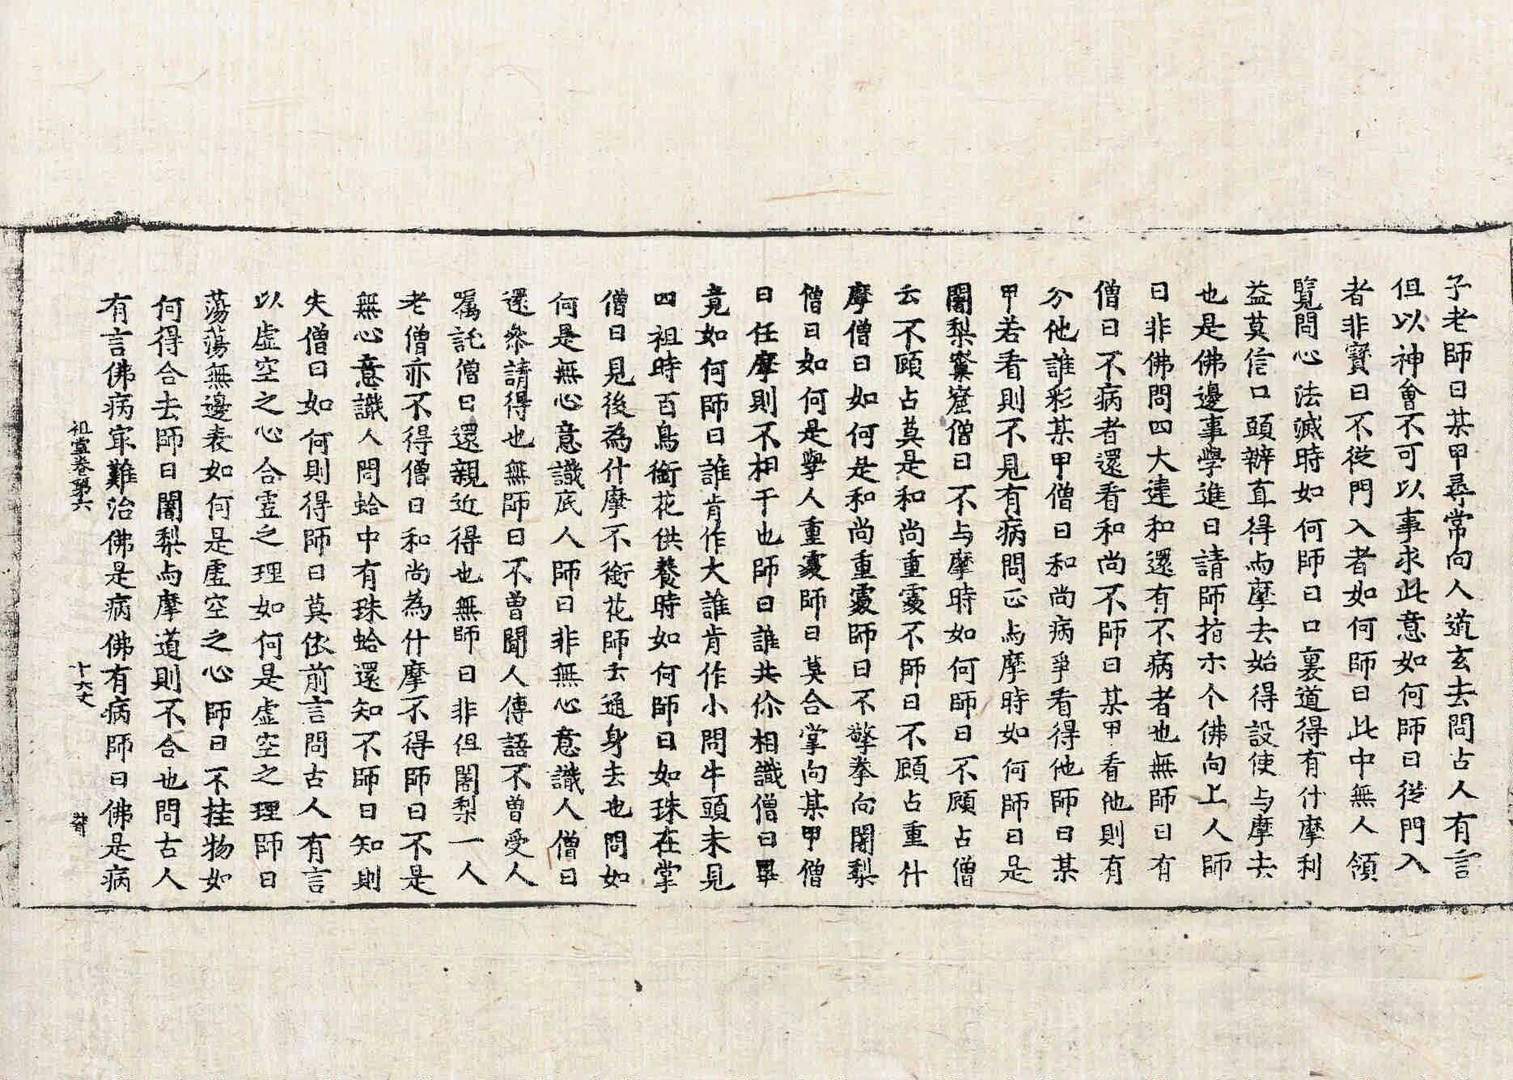 子老師曰某甲尋常向人道玄去問古人有言
但以神會不可以事求此意如何師曰從門入
者非寶曰不從門入者如何師曰此中無人領
覽問心法滅時如何師曰口裏道得有什摩利
益莫信口頭辦直得与摩去始得設使与摩去
也是佛邊事學進曰請師指示个佛向上人師
曰非佛問四大違和還有不病者也無師曰有
僧曰不病者還看和尚不師曰某甲看他則有
分他誰彩某甲僧曰和尚病爭看得他師曰某
甲若看則不見有病問正与摩時如何師曰是
闍梨窠窟僧曰不与摩時如何師曰不顧占僧
云不顧占莫是和尚重處不師曰不顧占重什
摩僧曰如何是和尚重處師曰不擎拳向闍梨
僧曰如何是學人重處師曰莫合掌向某甲僧
曰任摩則不相干也師曰誰共你相識僧曰畢
竟如何師曰誰肯作大誰肯作小問牛頭未見
四祖時百鳥銜花供養時如何師曰如珠在掌
僧曰見後為什摩不銜花師云通身去也問如
何是無心意識底人師曰非無心意識人僧曰
還參請得也無師曰不曾聞人傳語不曾受人
囑託僧曰還親近得也無師曰非但闍梨一人
老僧亦不得僧曰和尚為什摩不得師曰不是
無心意識人問蛤中有珠蛤還知不師曰知則
失僧曰如何則得師曰莫依前言問古人有言
以虛空之心合虛空之理如何是虛空之理師曰
蕩蕩無邊表如何是虛空之心師曰不挂物如
何得合去師曰闍梨与摩道則不合也問古人
有言佛病宲難治佛是病佛有病師曰佛是病
祖堂卷第六 十六丈